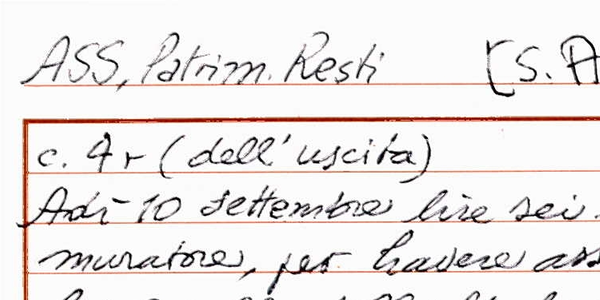 ASS, Patrim. Resti [S. A
c. 4r (dell'uscita)
Adì 10 settembre lire sei
muratore, per havere ass